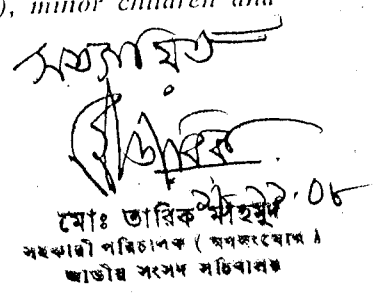 ), minor children and
সত্যায়িত
মোঃ তারিক মাহমুদ
সহকারী পরিচালক ( গণসংযোগ )
জাতীয় সংসদ সচিবালয়